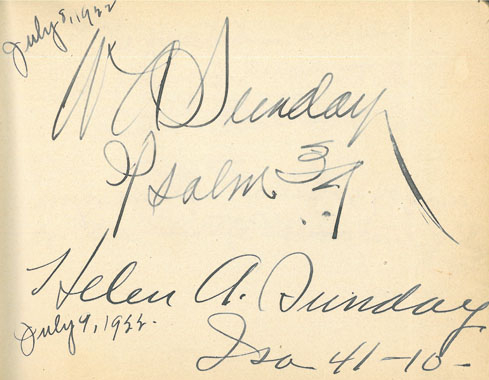 July 8, 1922
W A Sunday
Psalm 34
Helen A. Sunday
July 9, 1922.
Isa 41-10-